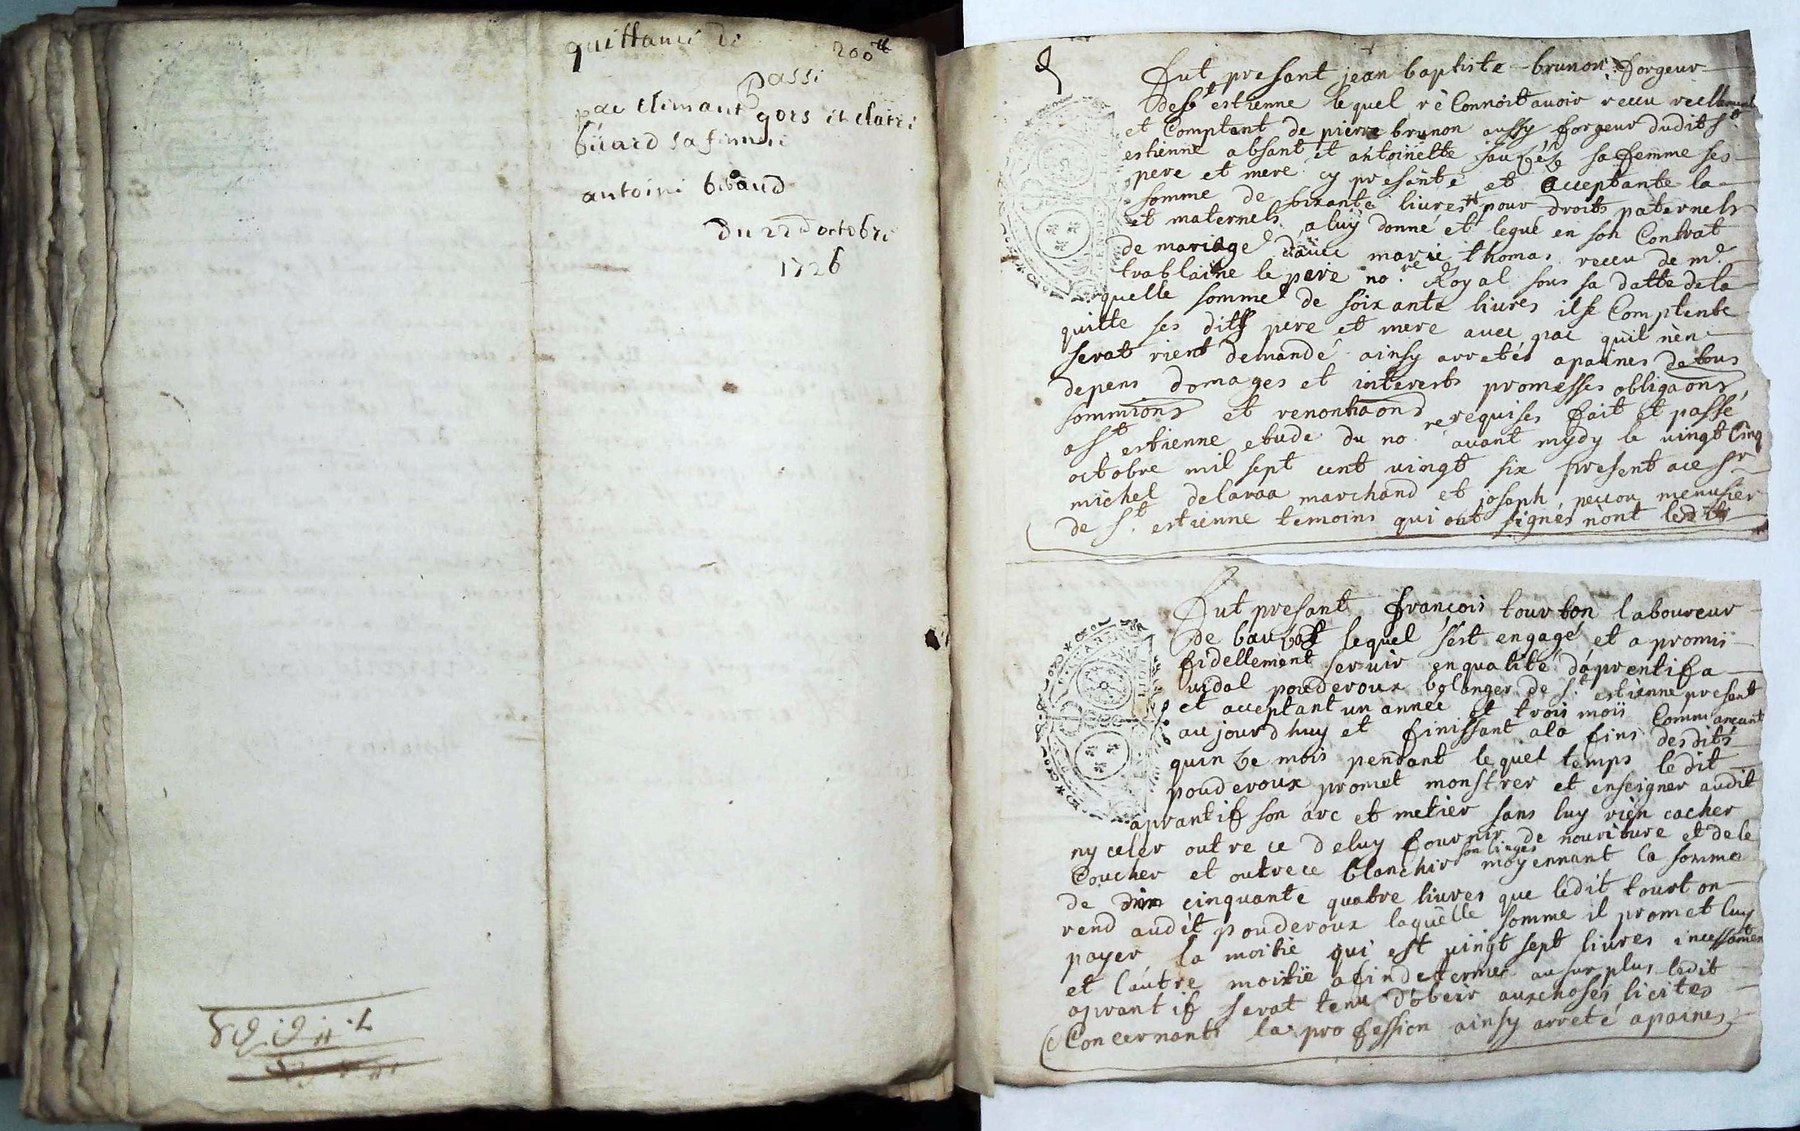 quittance de 200tt
passé
par Climant gors et claire
büard sa femme
antoine bibaud
Du 22 d'octobre
1726
fut presant jean baptiste brunon forgeur
de st estienne lequel rèConnoit avoir receu reellement
et Comptant de pierre brunon aussy forgeur dudit st
estienne absant et antoinette sa femme ses
pere et mere cy presante et acceptante la
somme de soixante livrestt pour droits paternels
et maternels a luy donné et legué en son Contrat
de mariage d'avec marie thomas receu de me
trablaine le pere nore Royal sous sa datte de la
quelle somme de soixante livres il se Comptente
quitte ses dits pere et mere avec pac quil nen
serat rient demandé ainsy arretés apaines de tous
depens domages et interests promesses obligaons
sommions et renontiaons requises fait et passé
a st estienne etude du nore avant mydy le vingt Cinq
octobre mil sept cent vingt six present ace sr
michel delaraa marchand et joseph peccou menusier
de st estienne temoins qui ont signés nont ledits
fut presant françois tourton laboureur
de lequel sest engagé et a promis
fidellement servir en qualité daprentif a
vidal pouderoux bolanger de st estienne presant
et acceptant un année et trois mois Commancant
aujourdhuy et finissant ala fins desdits
quinze mois pendant lequel temps ledit
pouderoux promet monstrer et enseigner audit
aprantif son arc et metier sans luy rien cacher
ny celer outre ce deluy fournir de nouriture et de le
Coucher et outre ce blanchir son linges moyennant la somme
de cinquante quatre livres que ledit tourton
rend audit pouderoux laquelle somme il promet luy
payer la moitie qui est vingt sept livres incessament
et l'autre moitie a fin de terme au surplus ledit
aprantif serat tenu d'obeir aux choses licites
Concernant la profession ainsy arreté apaines